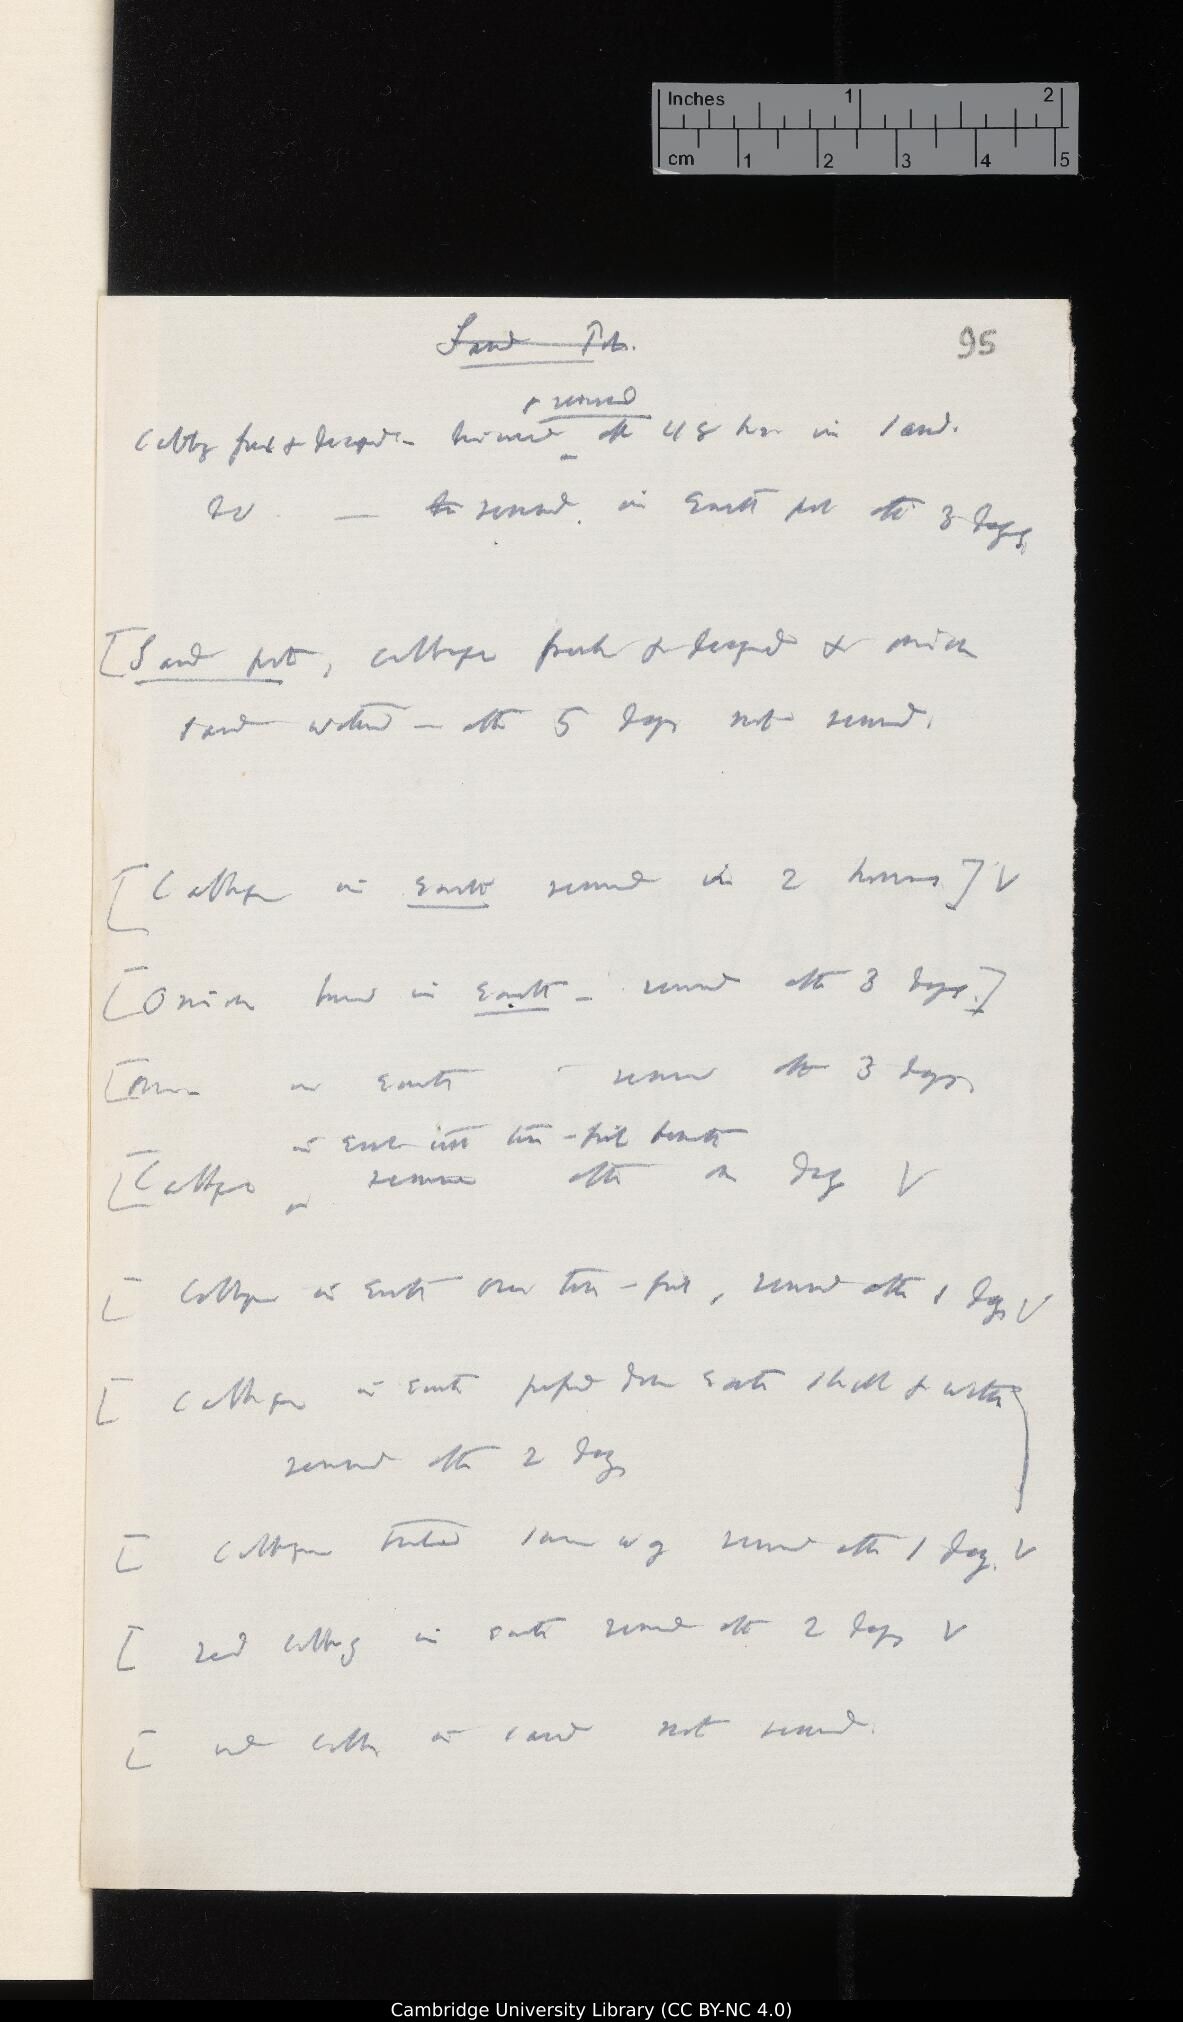 Inches 1 2
cm 1 2 3 4 5
Sand Pots.
95
& removed
Cabbage fresh & decayed – after 48 hrs in sand.
Do — removed in Earth pot after 3 days
[Sand pot, cabbage fresh & decayed & onion
sand watered – after 5 days not removed.
[Cabbage in Earth removed in 2 hours] V
[Onion buried in Earth – removed after 3 days.]
[Onion in earth – removed after 3 days
in Earth with tin-foil beneath
[Cabbage removed after one day V
[ Cabbage in Earth over tin-foil, removed after 1 day V
[ Cabbage in Earth down Earth & water]
removed after 2 days
[ Cabbage treated same way removed after 1 day. V
[ red cabbage in earth removed after 2 days V
[ red cabbage in sand not removed.
Cambridge University Library (CC BY-NC 4.0)